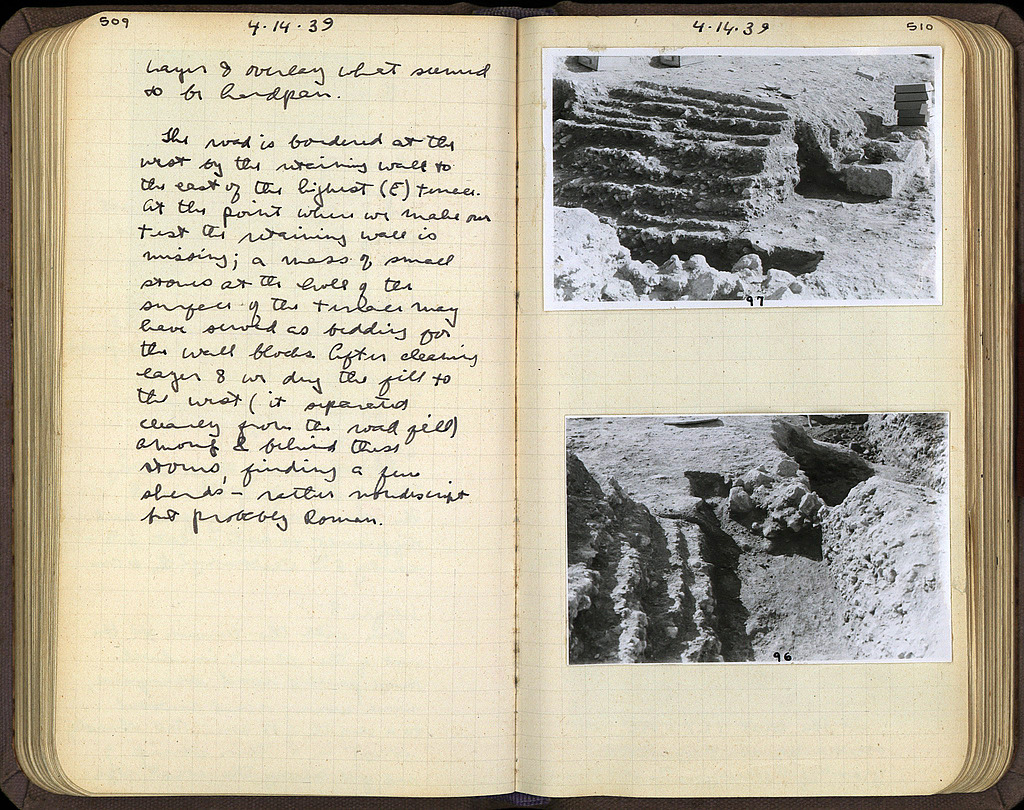 509
4·14·39
Layer 8 overlay what seemed
to be hardpan.
The road is bordered at the
west by the retaining wall to
the east of the highest (E) terrace.
At the point where we make our
test the retaining wall is
missing; a mass of small
stones at the level of the
surface of the terrace may
have served as bedding for
the wall blocks. After clearing
layer 8 we dug the fill to
the west (it separated
cleanly from the road fill)
among & behind these
stones, finding a few
sherds – rather nondescript
but probably Roman.
4·14·39
510
97
96